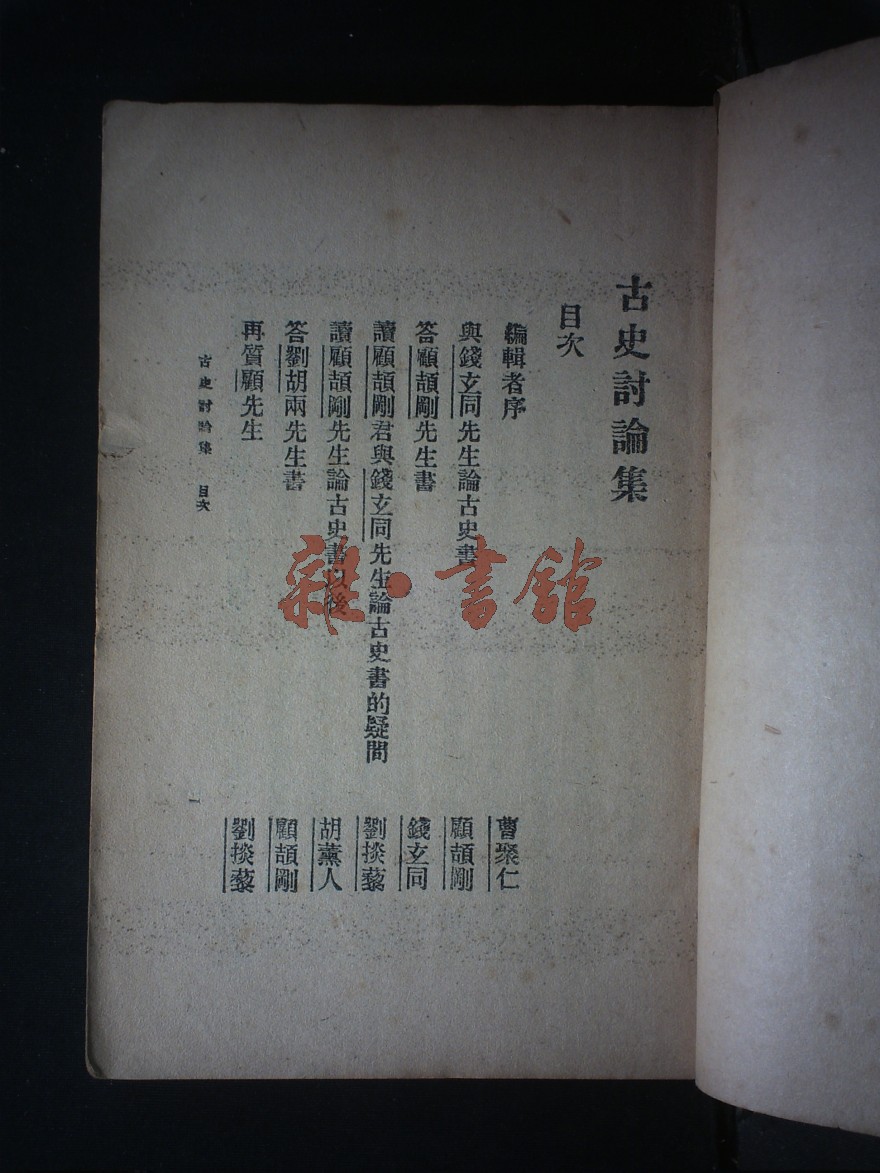 古史討論集
目次
編輯者序
曹聚仁
與錢玄同先生論古史書
顧頡剛
答顧頡剛先生書
錢玄同
讀顧頡剛君與錢玄同先生論古史書的疑問
劉掞藜
讀顧頡剛先生論古史書以後
胡薰人
答劉胡兩先生書
顧頡剛
再質顧先生
劉掞藜
古史討論集 目次
一
雜·書館